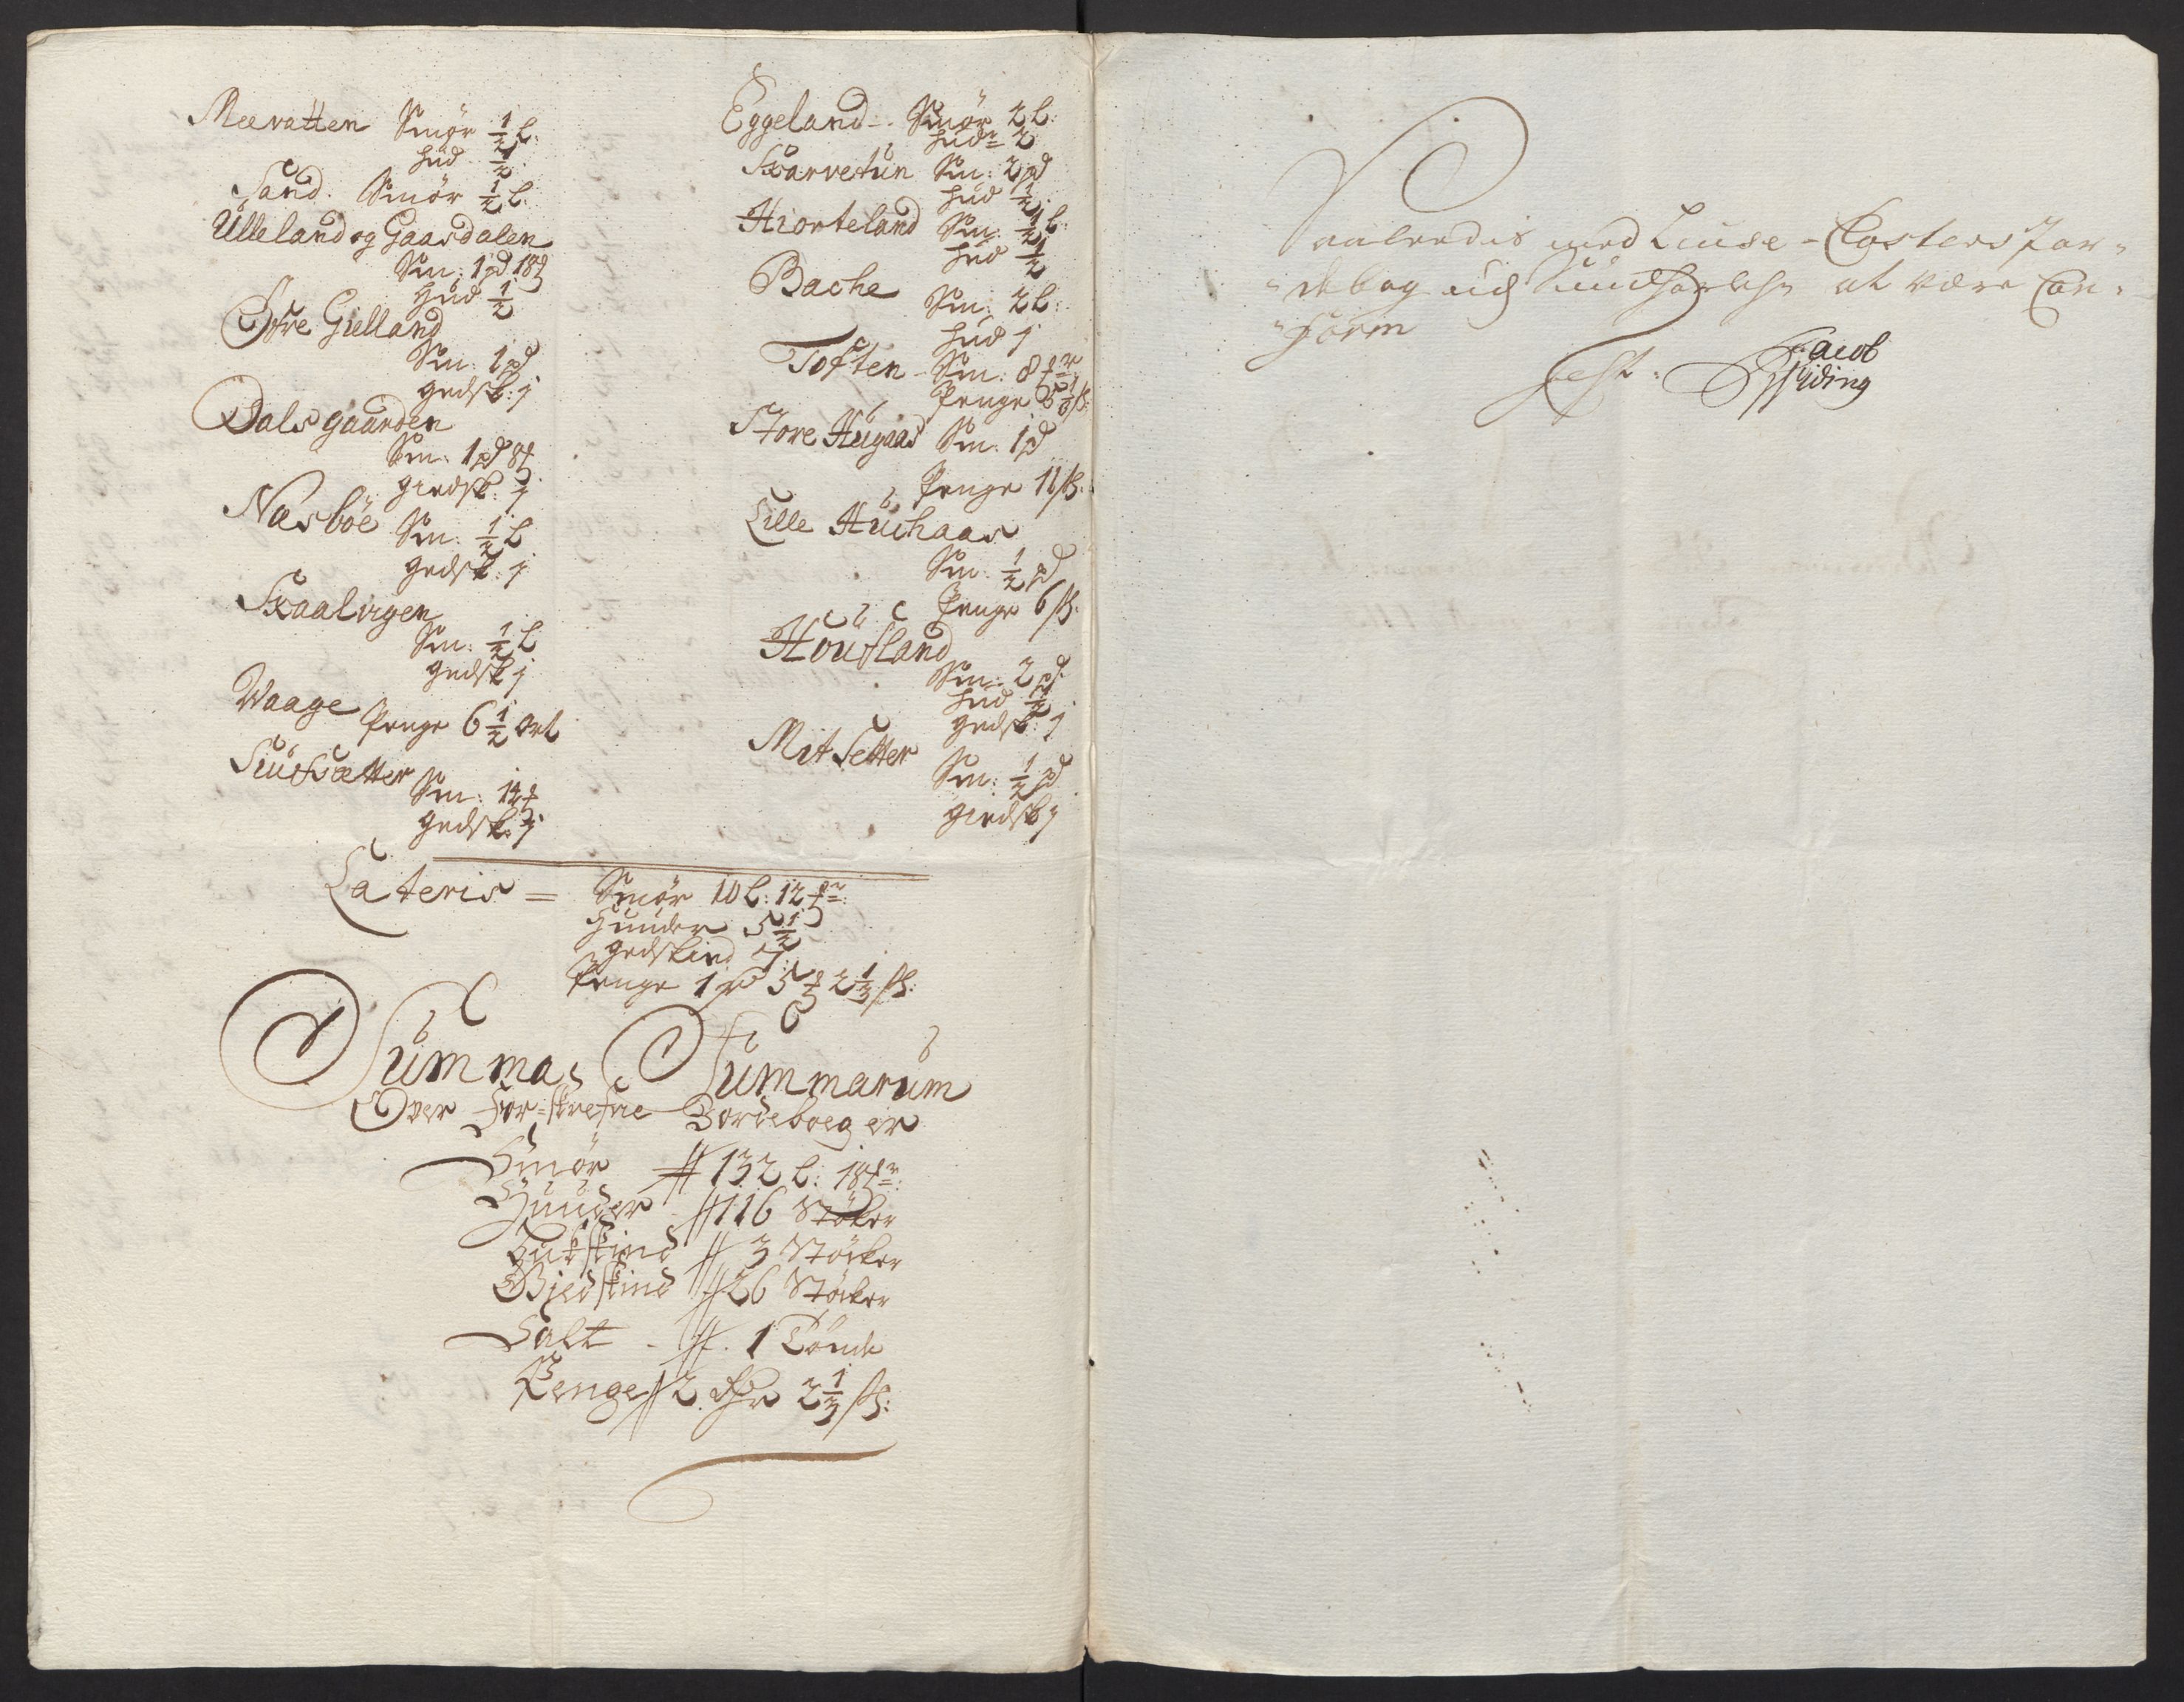 Meevatten Smör ½ L:
Hud ½
Sand. Smör ½ L:
Ulleland og Gaasdalen
Sm: 1 pd 18 ℔
Hud ½
Öfre Gielland
Sm: 1 pd
gedsk: j
Dalsgaarden
Sm: 1 pd 8 ℔
giedsk: j
Næsböe Sm: ½ L
gedsk: j
Skaalvigen
Sm: ½ L
gedsk j
Waage Penge 6½ ort
Siufsætter Sm: 14 ℔
gedsk: j
Eggeland - Smör 2 L:
Hudr 2
Skarvetun Sm: 2 pd
Hud ½
Hiorteland Sm: ½ L:
Hud ½
Bache
Sm: 2 L:
Hud j
Toften - Sm: 8 ℔r
Penge ß:
Store Hugaas Sm: 1 pd
Penge 11 ß:
Lille Huchaas
Sm: ½ pd
Penge 6 ß:
Houfland
Sm: 2 pd
Hud ½
gedsk: j
Mit Setter
Sm: ½ pd
giedsk j
Lateris = Smör 10 L: 12 ℔r:
Huuder 5½
gedskind 7:
Penge 1 5 2⅓ ß:
Summa Summarum
Over For-skrefne Jordeboeg er
Smör // 132 L: 18 ℔r:
Huuder // 116 Stöker
Bukskind // 3 Stöcker
Gjedskind // 26 Stöcker
Salt - // . 1 Tönde
Penge // 2 Rdr 2⅓ ß:
Saaledis med Liuse-Closters Jor-
-debog udj Sundhorlehn at være Con-
-form
Test: Jacob
Widing